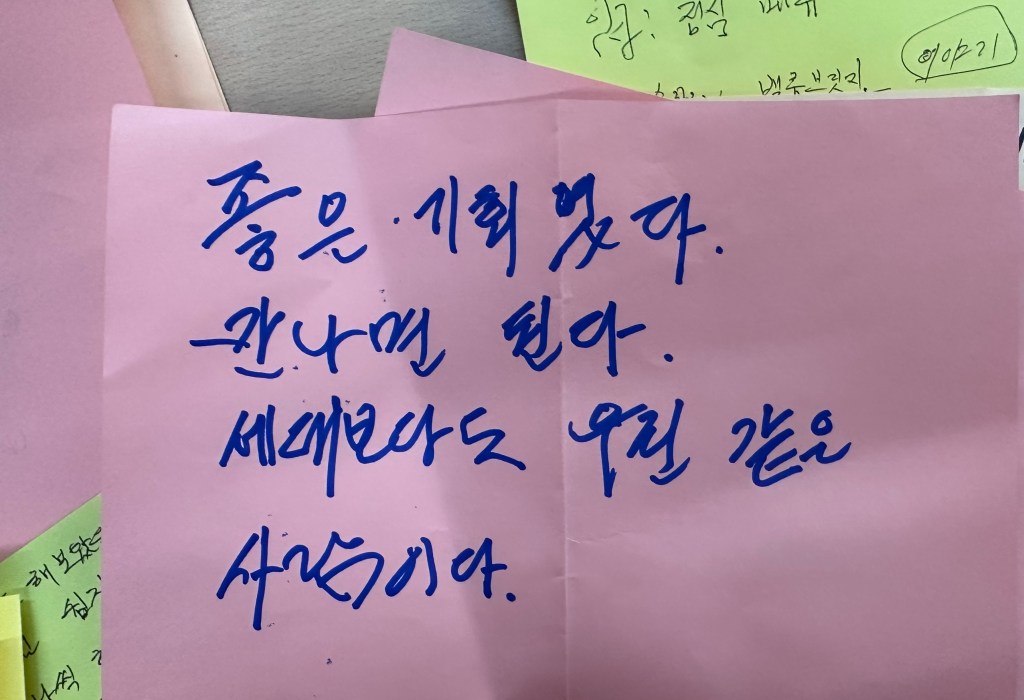 점심
이야기
좋은 기회였다.
만나면 된다.
세대보다도 우린 같은
사람이다.
해보았